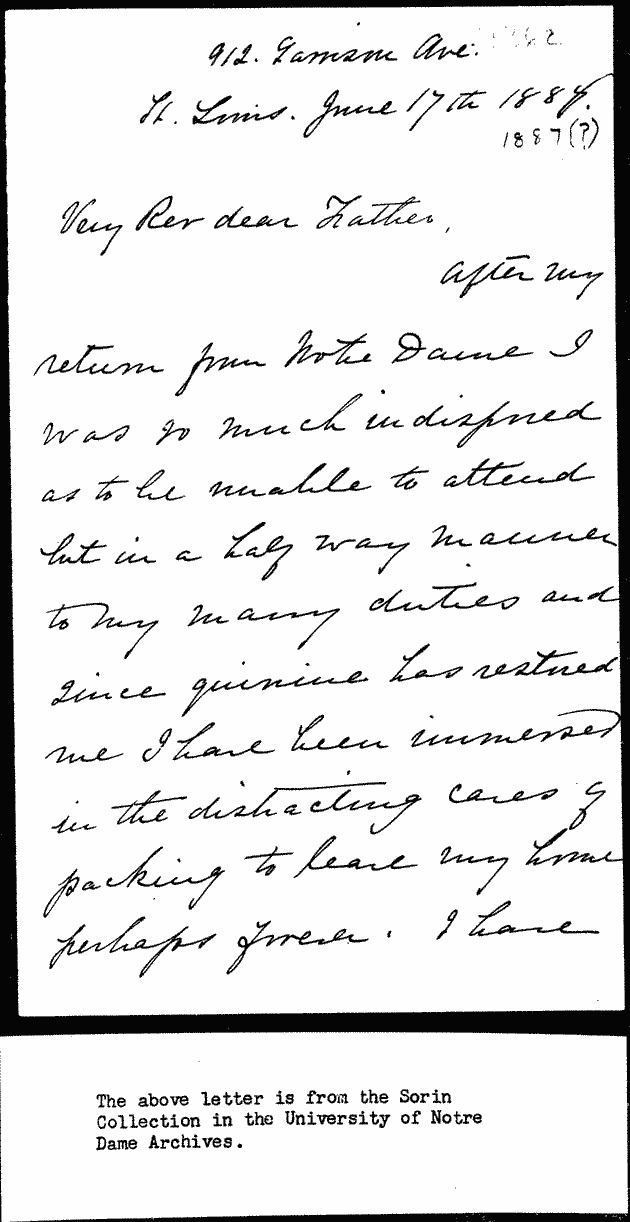 912. Garrison Ave.
St. Louis. June 17th 188
1887(?)
Very Rev dear Father,
After my
return from Notre Dame I
was so much indisposed
as to be unable to attend
but in a half way manner
to my many duties and
since quinine has restored
me I have been immersed
in the distracting cares of
packing to leave my home
perhaps forever. I have
The above letter is from the Sorin
Collection in the University of Notre
Dame Archives.